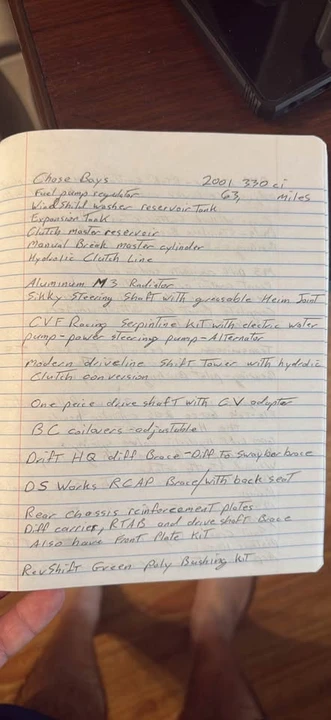 Chase Bays 2001 330 ci
Fuel pump regulator 63, miles
Windshild washer reservoir tank
Expansion Tank
Clutch master reservoir
Manual Break master cylinder
Hydrolic Clutch Line
Aluminum M3 Radiator
Sikky Steering Shaft with greasable Heim Joint
CVF Racing Serpintine Kit with electric water
pump-power steering pump-Alternator
Modern driveline Shift Tower with hydrolic
Clutch conversion
One peice drive shaft with C.V. adapter
BC coilovers-adjustable
Drift HQ diff Brace-Diff to swaybar brace
DS Works RCAP Brace/with back seat
Rear chassis reinforcement plates
Diff carrier, RTAB and drive shaft Brace
Also have Front Plate Kit
RevShift Green Poly Bushing Kit